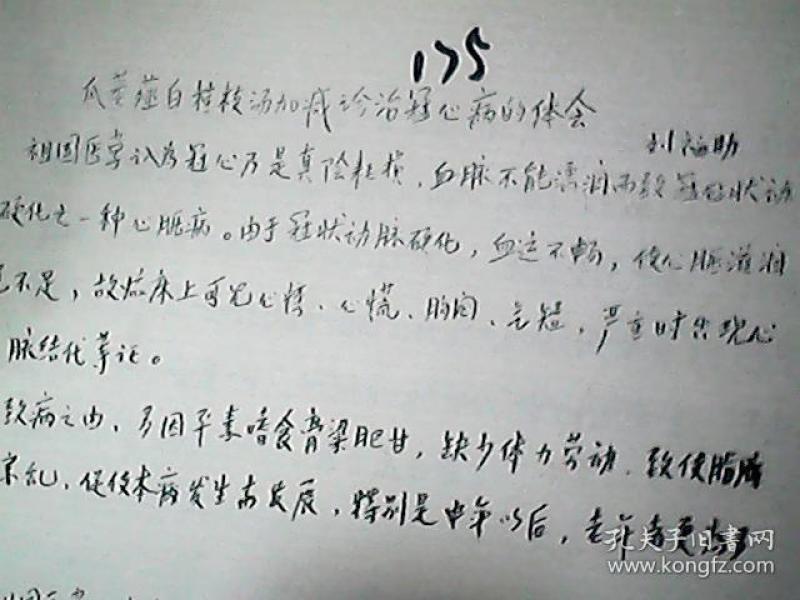 175
瓜蒌薤白桂枝汤加减诊治冠心病的体会
刘福助
祖国医学认为冠心乃是真阴耗损,血脉不能濡润而致冠状动
硬化之一种心脏病。由于冠状动脉硬化,血运不畅,使心脏滋润
不足,故临床上可见心悸、心慌、胸闷、气短,严重时出现心
脉结代等证。
致病之由,多因平素嗜食膏粱肥甘,缺少体力劳动,致使脂肪
乱,促使本病发生与发展,特别是中年以后,老年者更为
孔夫子旧书网
www.kongfz.com